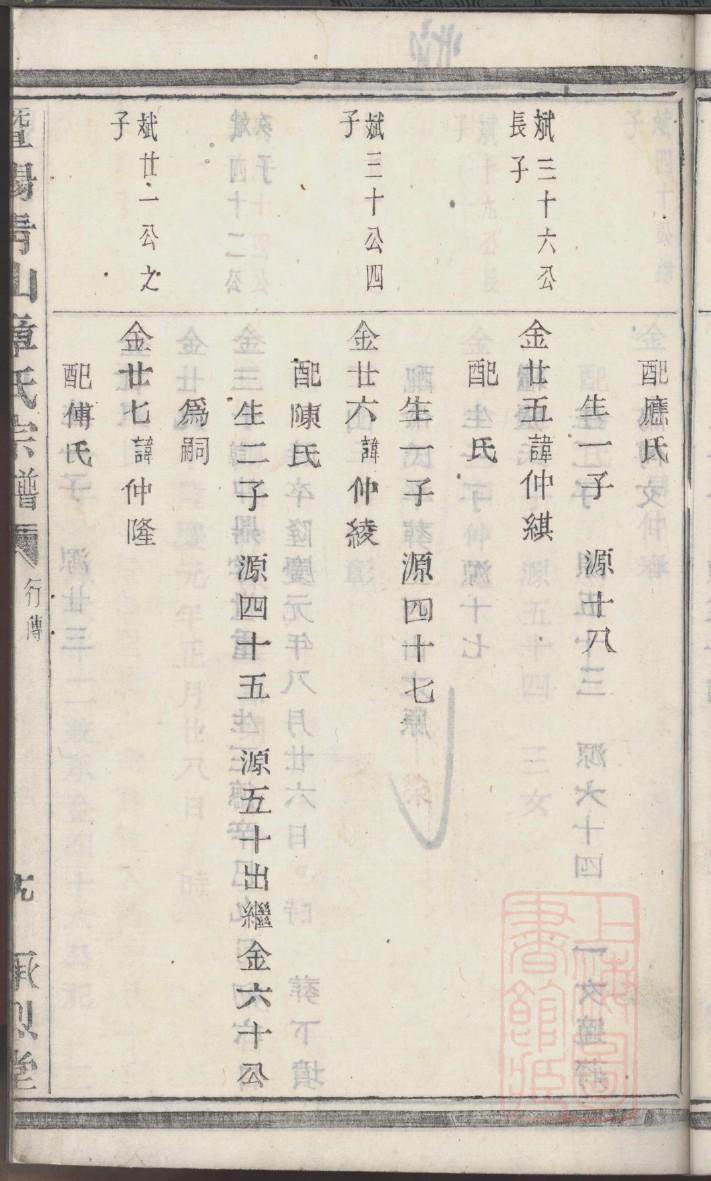 配應氏
生一子 源十八
斌三十六公
長子
金廿五諱仲綨
配 氏
生一子 源四十七
斌三十公四
子
金廿六諱仲綾
配陳氏
生二子 源四十五 源五十出繼金六十公
爲嗣
斌廿一公之
子
金廿七諱仲隆
配傅氏
暨陽青山章氏宗譜 行傳 承烈堂
上海圖書館藏